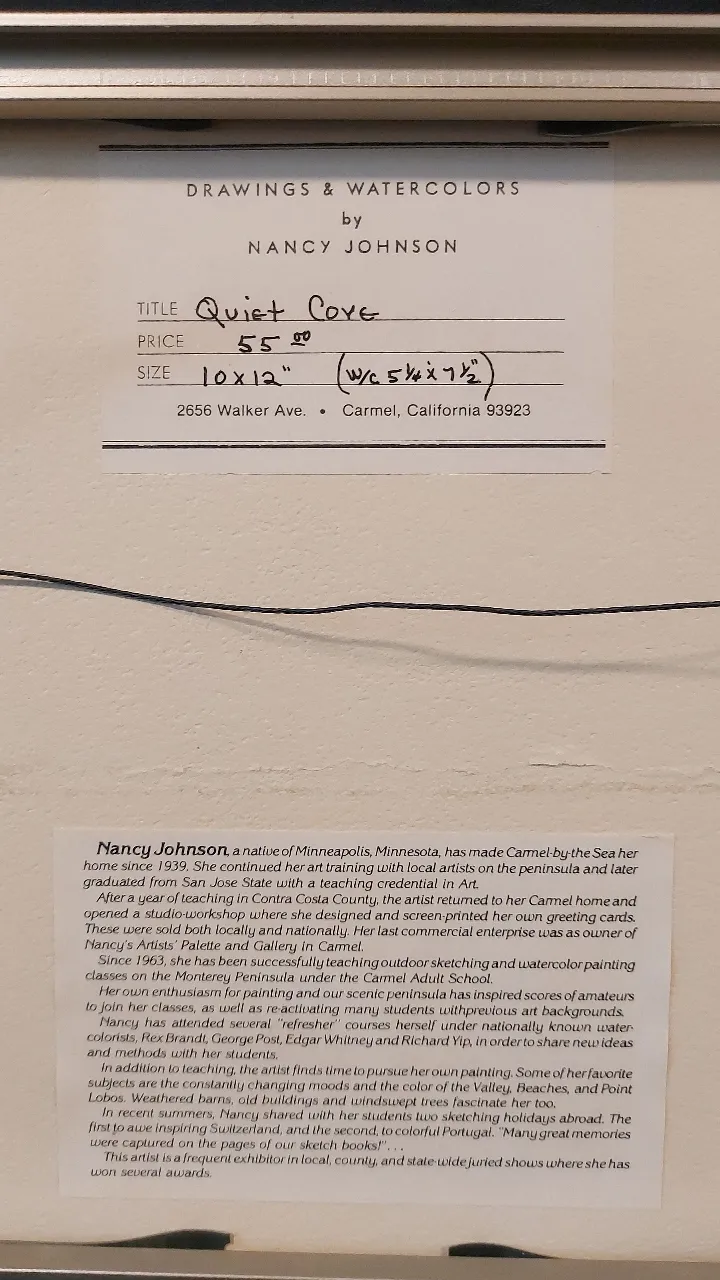 DRAWINGS & WATERCOLORS
by
NANCY JOHNSON
TITLE Quiet Cove
PRICE 55 00
SIZE 10 x 12" (w/c 5 1/4 x 7 1/2")
2656 Walker Ave. • Carmel, California 93923
Nancy Johnson, a native of Minneapolis, Minnesota, has made Carmel-by-the Sea her
home since 1939. She continued her art training with local artists on the peninsula and later
graduated from San Jose State with a teaching credential in Art.
After a year of teaching in Contra Costa County, the artist returned to her Carmel home and
opened a studio-workshop where she designed and screen-printed her own greeting cards.
These were sold both locally and nationally. Her last commercial enterprise was as owner of
Nancy's Artists' Palette and Gallery in Carmel.
Since 1963, she has been successfully teaching outdoor sketching and watercolor painting
classes on the Monterey Peninsula under the Carmel Adult School.
Her own enthusiasm for painting and our scenic peninsula has inspired scores of amateurs
to join her classes, as well as re-activating many students withprevious art backgrounds.
Nancy has attended several "refresher" courses herself under nationally known water-
colorists, Rex Brandt, George Post, Edgar Whitney and Richard Yip, in order to share new ideas
and methods with her students.
In addition to teaching, the artist finds time to pursue her own painting. Some of her favorite
subjects are the constantly changing moods and the color of the Valley, Beaches, and Point
Lobos. Weathered barns, old buildings and windswept trees fascinate her too.
In recent summers, Nancy shared with her students two sketching holidays abroad. The
first to awe inspiring Switzerland, and the second, to colorful Portugal. "Many great memories
were captured on the pages of our sketch books!". . .
This artist is a frequent exhibitor in local, county, and state-wide juried shows where she has
won several awards.